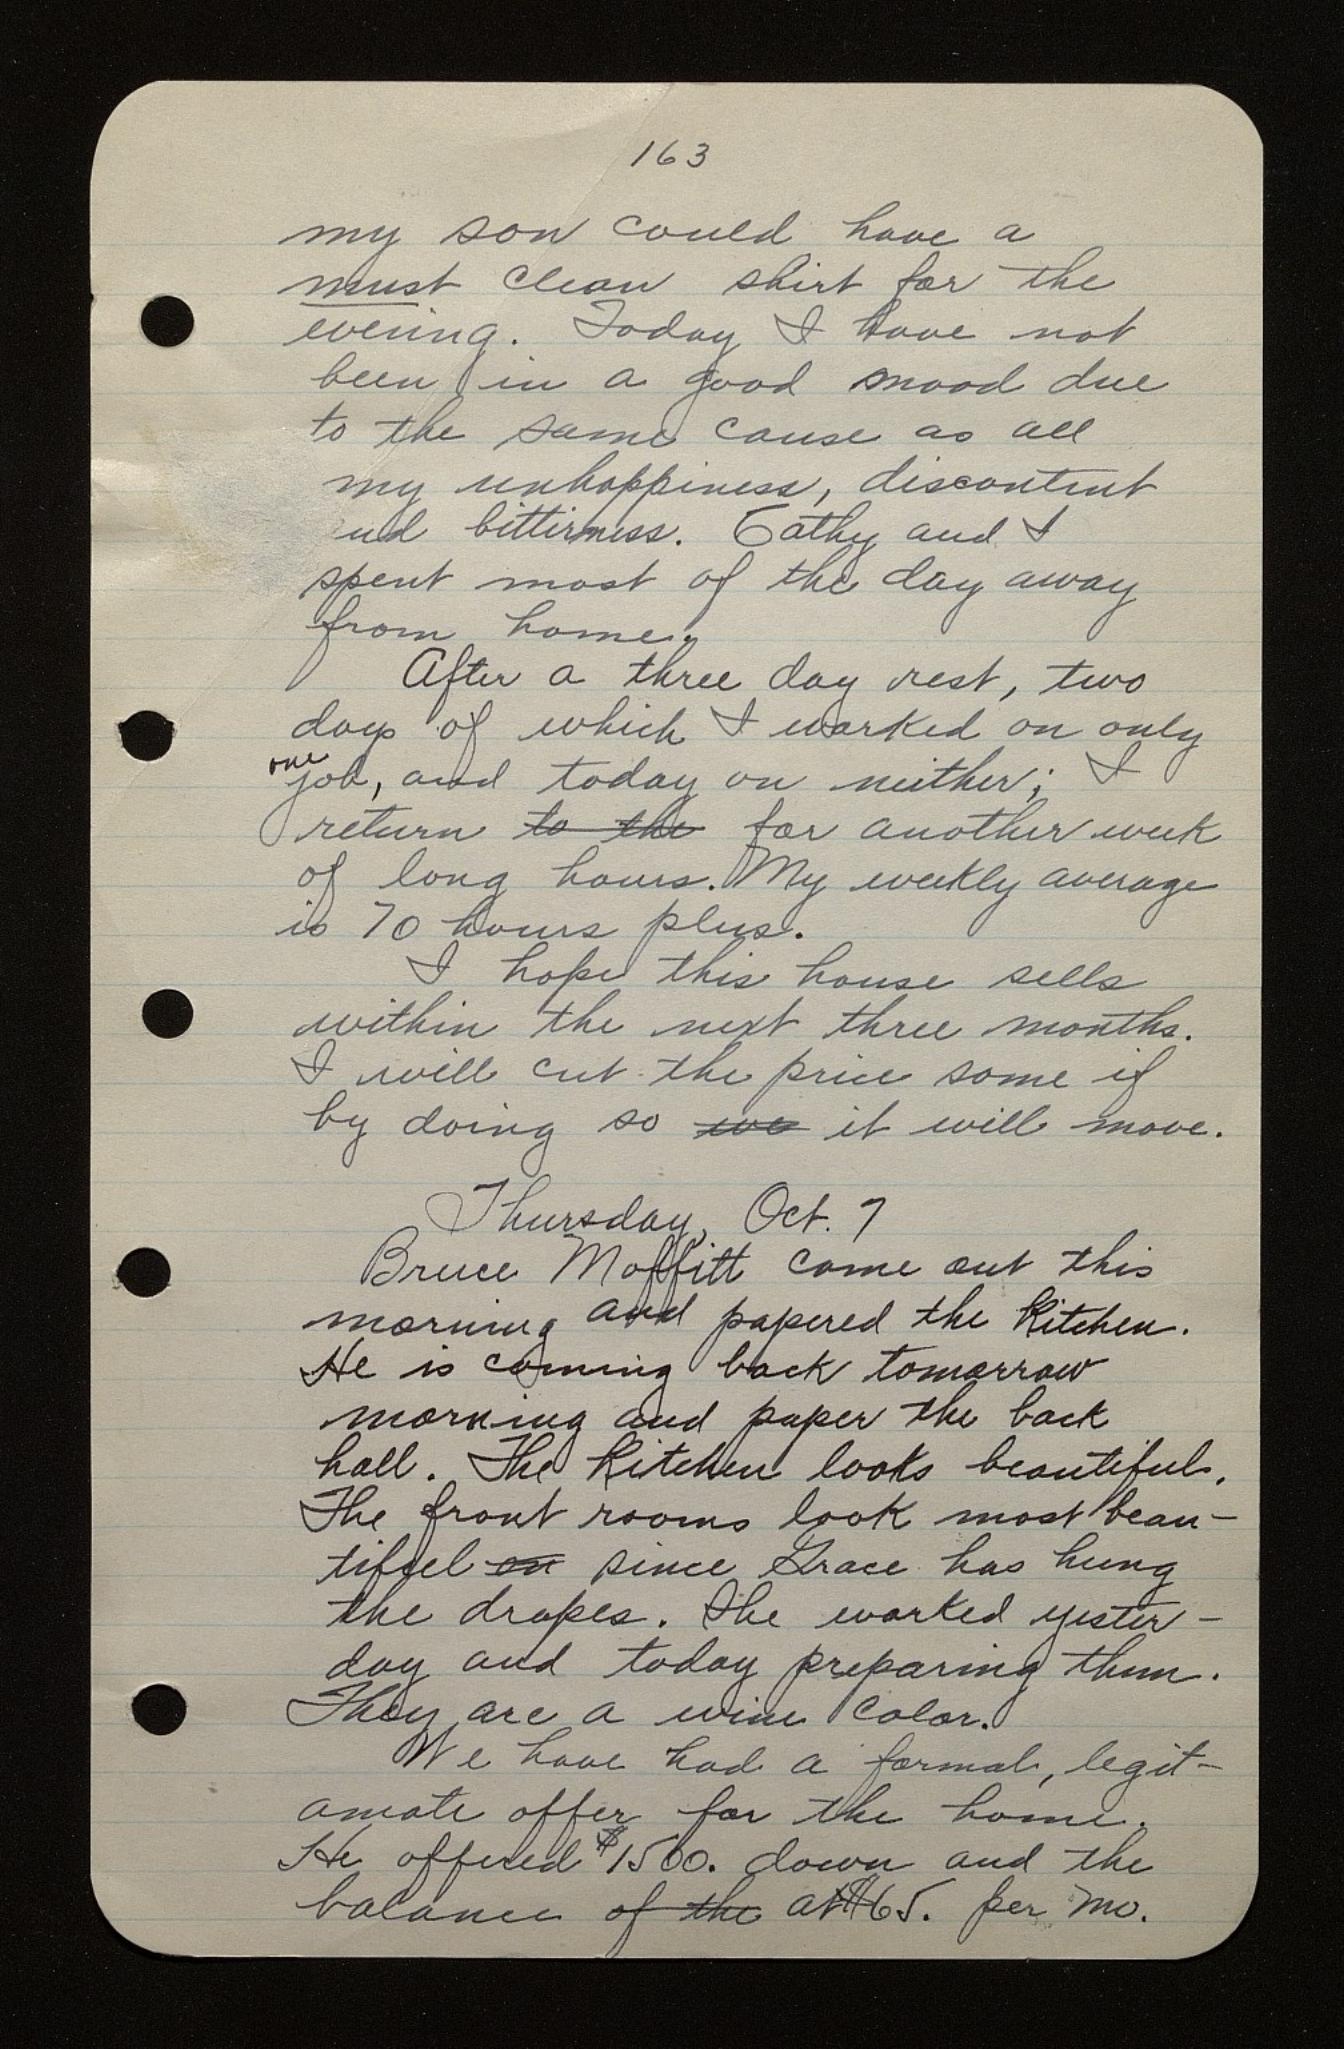 163
my son could have a
must clean shirt for the
evening. Today I have not
been in a good mood due
to the same cause as all
my unhappiness, discontent
and bitterness. Cathy and I
spent most of the day away
from home.
After a three day rest, two
days of which I worked on only
one job, and today on neither; I
return to the for another week
of long hours. My weekly average
is 70 hours plus.
I hope this house sells
within the next three months.
I will cut the price some if
by doing so we it will move.
Thursday, Oct. 7
Bruce Moffitt came out this
morning and papered the kitchen.
He is coming back tomorrow
morning and paper the back
hall. The kitchen looks beautiful.
The front rooms look most beau-
tiful on since Grace has hung
the drapes. She worked yester-
day and today preparing them.
They are a wine color.
We have had a formal, legit-
amate offer for the home.
He offered $1500. down and the
balance of the at $65. per mo.